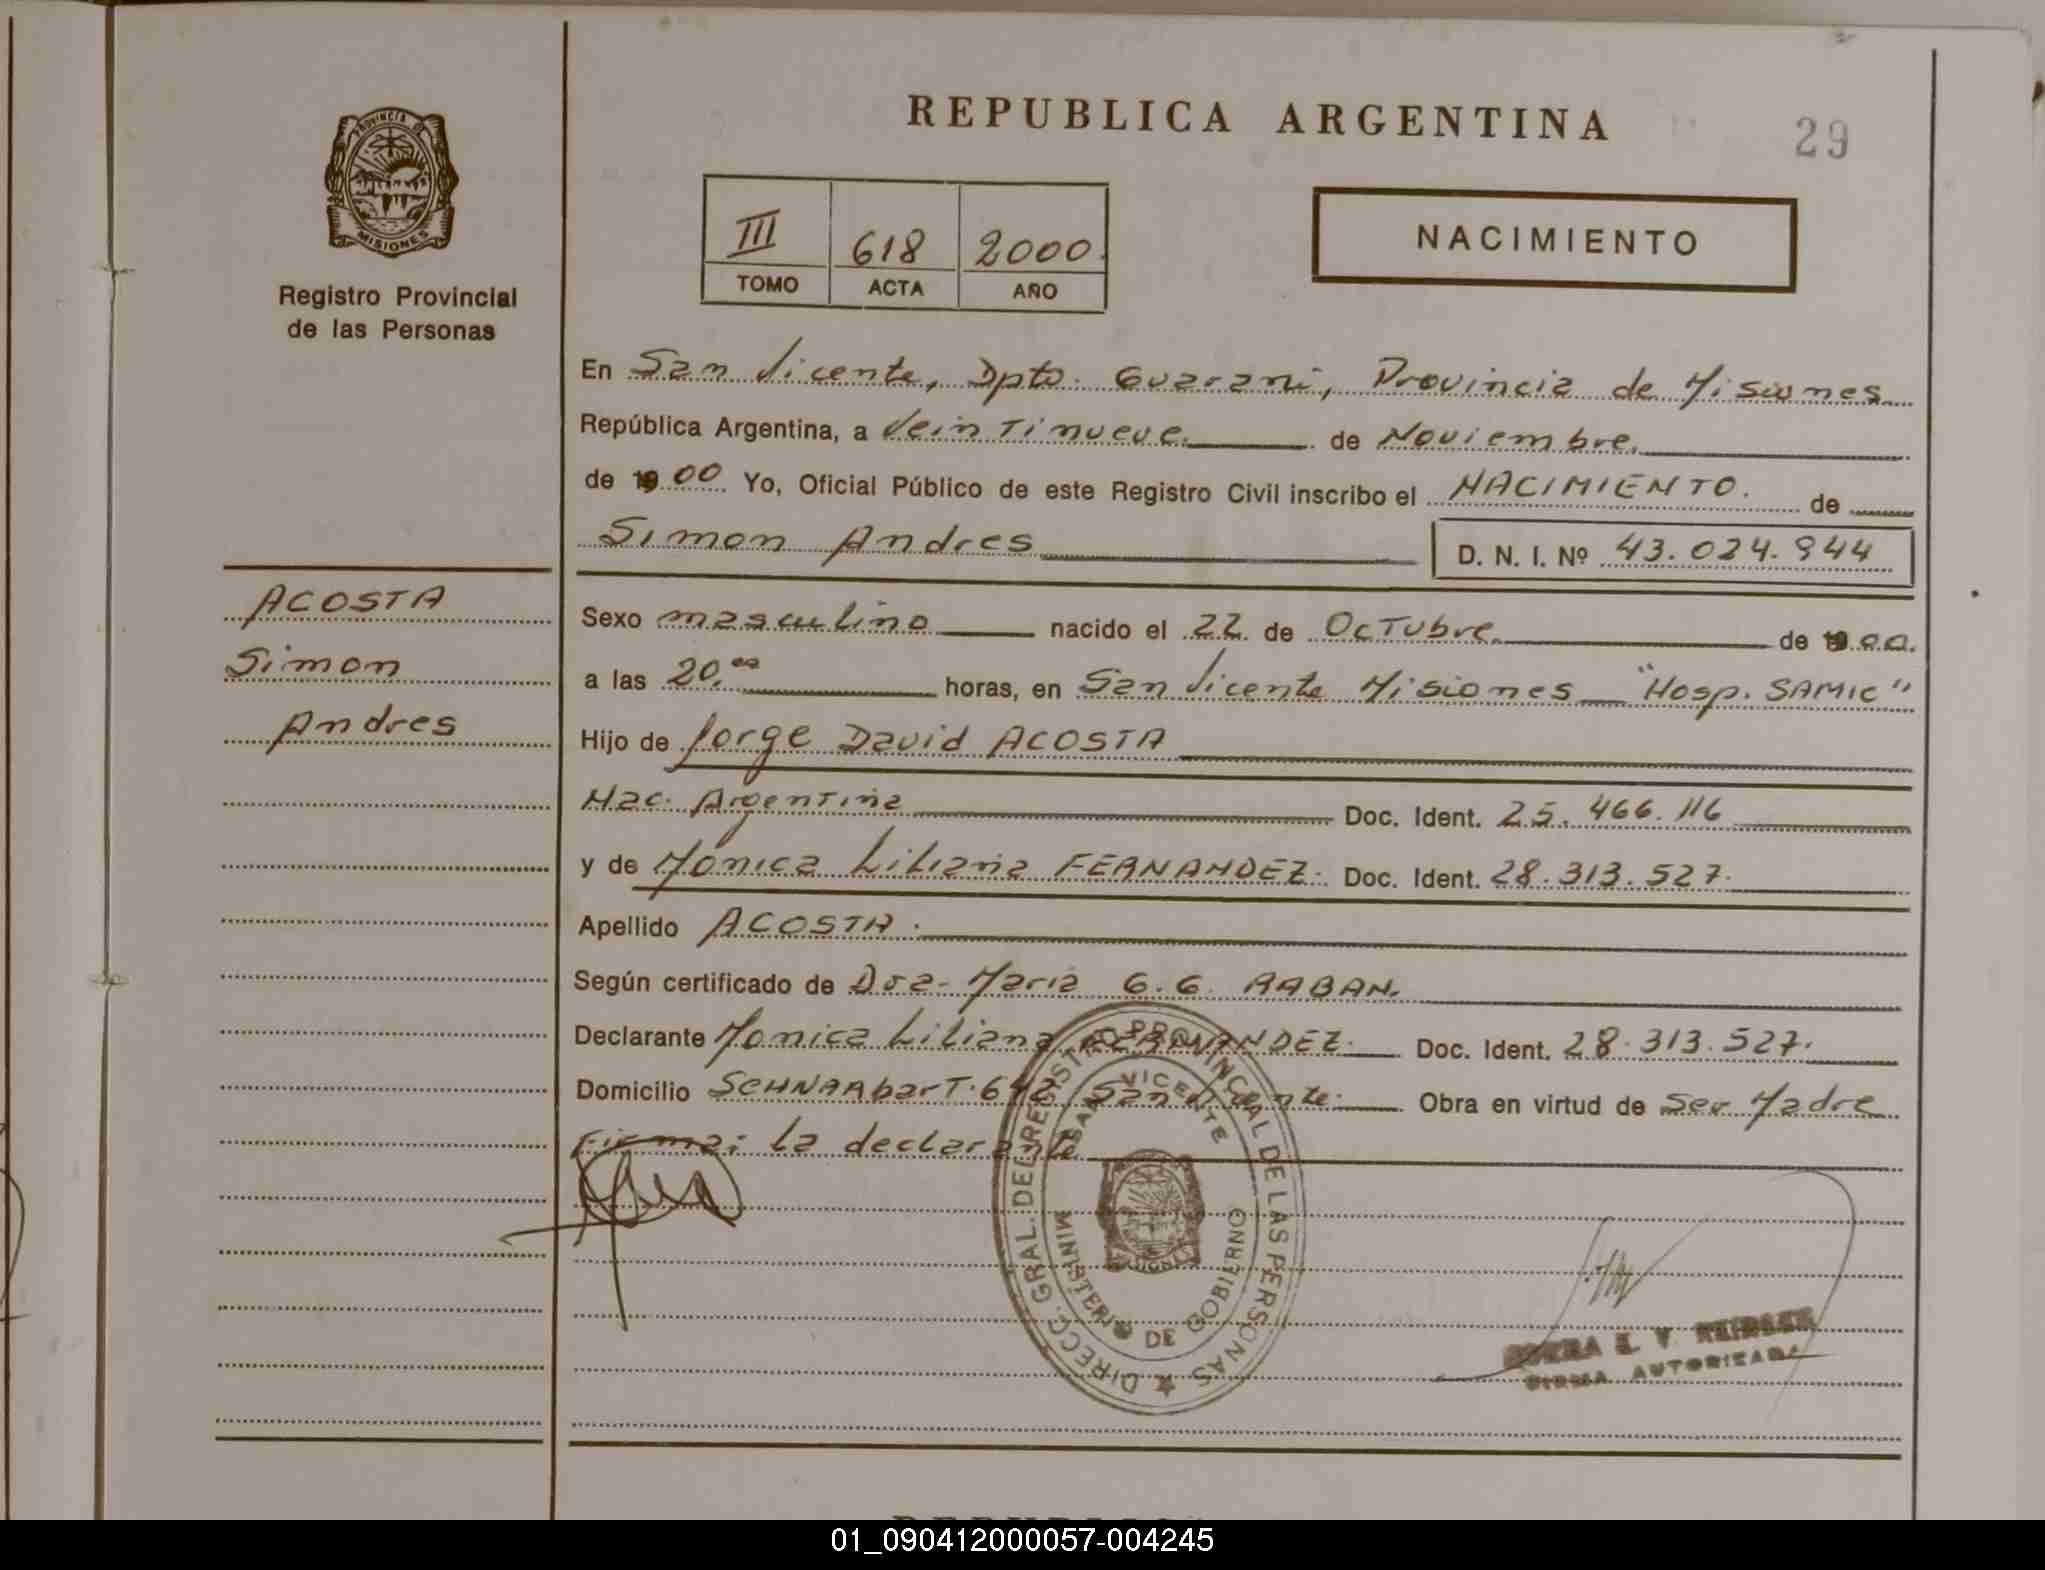 REPUBLICA ARGENTINA
29
PROVINCIA DE
MISIONES
Registro Provincial
de las Personas
III 618 2000
TOMO ACTA AÑO
NACIMIENTO
En San Vicente, Dpto. Guarani, Provincia de Misiones
República Argentina, a Veintinueve de Noviembre
de 00 Yo, Oficial Público de este Registro Civil inscribo el NACIMIENTO. de
Simon Andres
D. N. I. Nº 43.024.944
ACOSTA
Simon
Andres
Sexo masculino nacido el 22 de Octubre de 00.
a las 20.00 horas, en San Vicente Misiones "Hosp. SAMIC"
Hijo de Jorge David ACOSTA
Nac. Argentina Doc. Ident. 25.466.116
y de Monica Liliana FERNANDEZ Doc. Ident. 28.313.527.
Apellido ACOSTA.
Según certificado de Dra. Maria G. G. RABAN.
Declarante Monica Liliana FERNANDEZ Doc. Ident. 28.313.527.
Domicilio San Vicente Obra en virtud de Ser Madre
Firma: La declarante
DIRECC. GRAL. DEL REGISTRO PROVINCIAL DE LAS PERSONAS
SAN VICENTE
MINISTERIO DE GOBIERNO
FIRMA AUTORIZADA
01_090412000057-004245